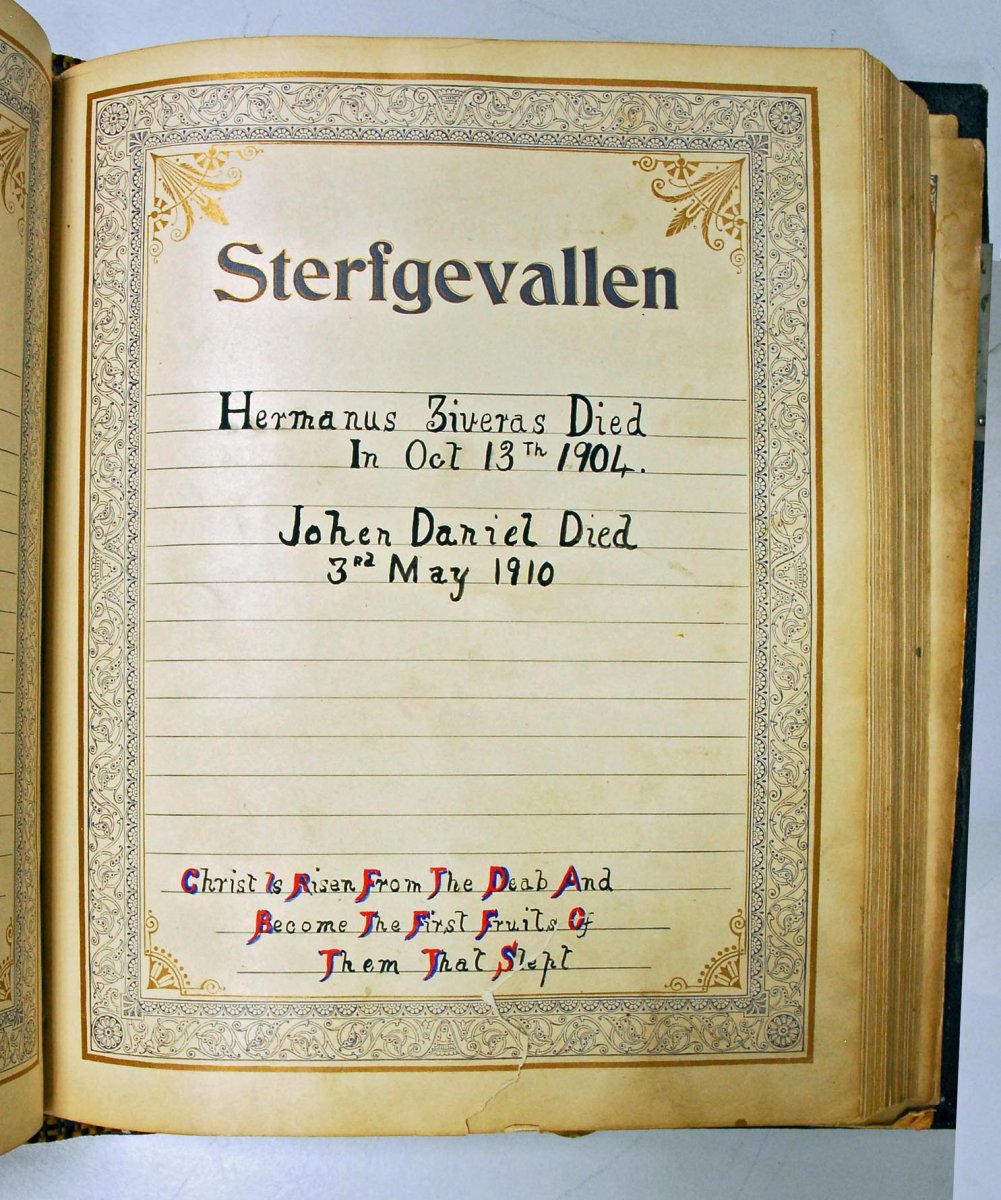 Sterfgevallen
Hermanus Ziveras Died
In Oct 13Th 1904.
Johen Daniel Died
3rd May 1910
Christ Is Risen From The Deab And
Become The First Fruits Of
Them That Slept